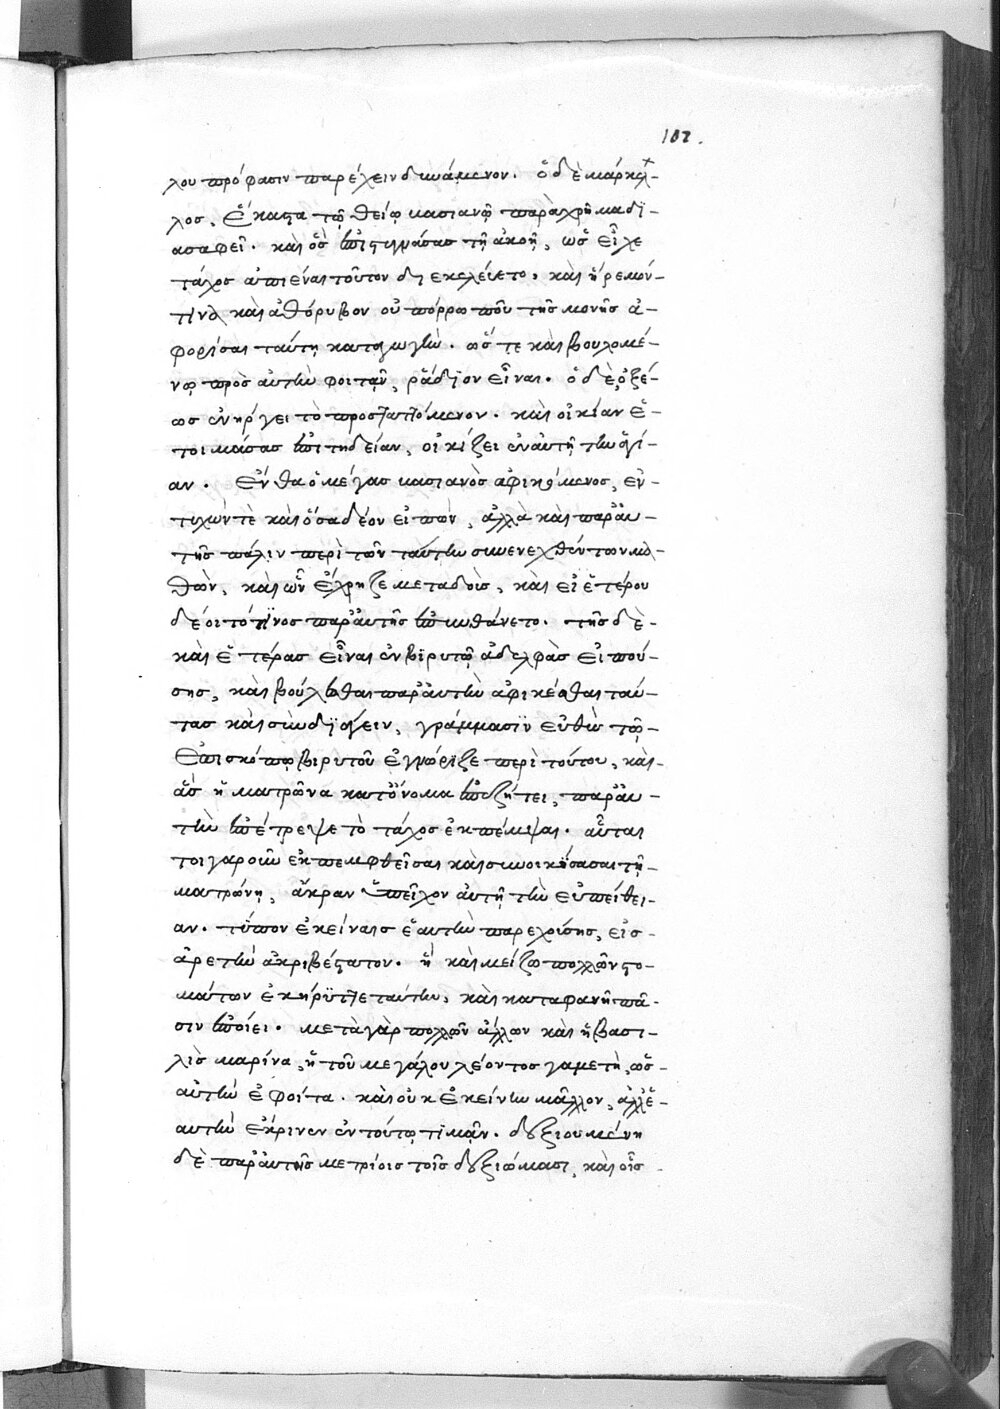 102.
λου πρόφασιν παρέχειν δυνάμενον. ὁ δὲ μάρκελ-
λος, ἕκαστα τῷ θείῳ βασιανῷ παραχρῆμα δϊ-
ασαφεῖ. καὶ ὃς ἐπιστυγνάσας τῇ ἀκοῇ, ὡς εἶχε
τάχος ἀπιέναι τοῦτον διεκελεύετο. καὶ ἠρεμόν-
τινα καὶ ἀθόρυβον οὐ πόρρω που τῆς μονῆς ἀ-
φορίσαι ταύτῃ καταγωγὴν. ὥστε καὶ βουλομέ-
νῳ πρὸς αὐτὴν φοιτᾶν, ῥάδϊον εἶναι. ὁ δὲ, ὀξέ-
ως ἐνήργει τὸ προσταττόμενον. καὶ οἰκίαν ἑ-
τοιμάσας ἐπιτηδείαν, οἰκίζει ἐν αὐτῇ τὴν ἁγί-
αν. ἔνθα ὁ μέγας βασιανὸς ἀφικόμενος, ἐν-
τυχών τὲ καὶ ὅσα δέον εἰπὼν, ἀλλὰ καὶ παρ' αὐ-
τῆς πάλιν περὶ τῶν ταύτῃ συνενεχθέντων μα-
θὼν, καὶ ὧν ἔχρηζε μεταδοὺς, καὶ εἰ ἑτέρου
δέοιτό τϊνος παρ' αὐτῆς ἐπυνθάνετο. τῆς δὲ-
καὶ ἑτέρας εἶναι ἐν βϊρυτῷ ἀδελφὰς εἰπού-
σης, καὶ βούλεσθαι παρ' αὐτὴν ἀφικέσθαι ταύ-
τας καὶ συνδϊάγειν, γράμμασϊν εὐθὺ τῷ-
ἐπισκόπῳ βιρυτοῦ ἐγνώριζε περὶ τούτου, καὶ-
ἃς ἡ ματρῶνα κατ' ὄνομα ἐπεζήτει, παρ' αὐ-
τὴν ἐπέτρεψε τὸ τάχος ἐκπέμψαι. αὗται
τοιγαροῦν ἐκπεμφθεῖσαι καὶ συνοικήσασαι τῇ-
ματρώνῃ, ἄκραν ὑπεῖχον αὐτῇ τὴν εὐπείθει-
αν. τύπον ἐκείναις ἑαυτὴν παρεχούσης, εἰς-
ἀρετὴν ἀκριβέστατον. ἣ καὶ μείζω πολλῶν στο-
μάτων ἐκήρϋττε ταύτην, καὶ καταφανῆ πᾶ-
σιν ἐποίει. μετὰ γὰρ πολλῶν ἄλλων καὶ ἡ βασι-
λὶς μαρίνα, ἡ τοῦ μεγάλου λέοντος γαμετὴ, ὡς-
αὐτὴν ἐφοίτα. καὶ οὐκ ἐκείνην μᾶλλον, ἀλλ' ἑ-
αυτὴν ἔκρινεν ἐν τούτῳ τϊμᾶν. δεξιουμένη
δὲ παρ' αὐτῆς μετρίοις τοῖς δεξιώμασι, καὶ οἷς-